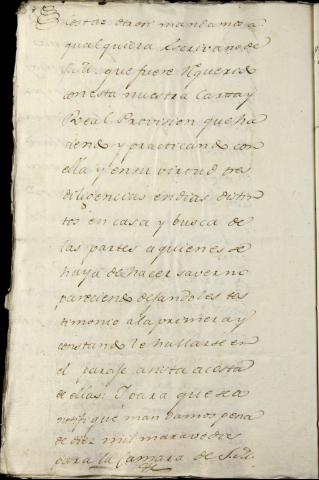 costas otrosi mandamos a
qualquiera Escrivano de
que fuere requerido
con esta nuestra Carta y
Real Provision que ha
ciendo y practicando con
ella y en su virtud tres
diligencias en dias distin
tos en casa y busca de
las partes a quienes se
haya de hacer saver no
pareciendo dejandoles tes
timonio a la primera y
constando le hallarse en
el paraje anita a costa
de ellas: Y para que sea
notifique mandamos pena
de diez mil maravedis
para la Camara de